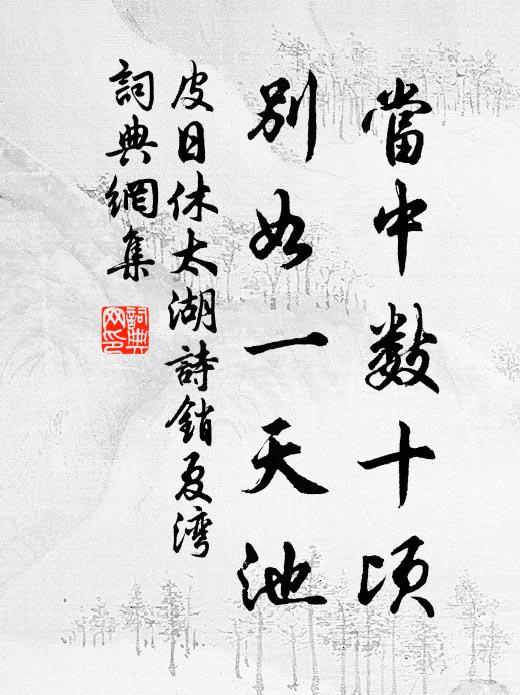 當中數十頃
別如一天池
皮日休太湖詩銷夏灣
詞典網集
詞典網印